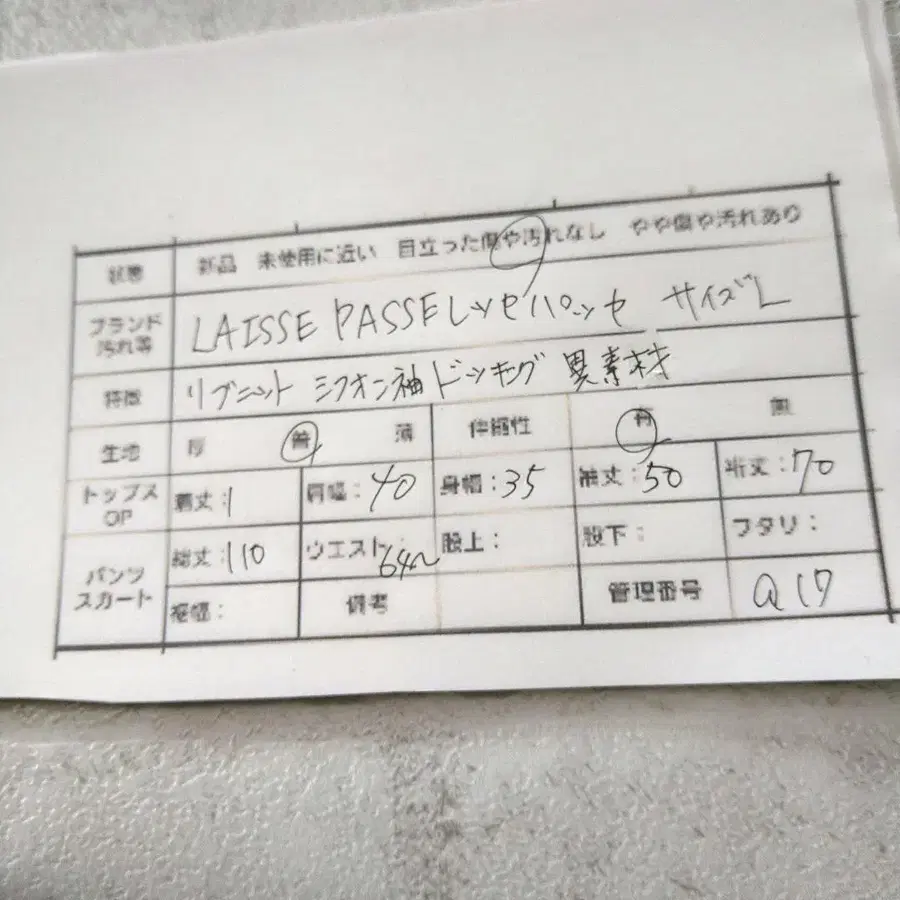 状態 新品 未使用に近い 目立った傷や汚れなし やや傷や汚れあり
ブランド 汚れ等 LAISSE PASSE レッセパッセ サイズL
特徴 リブニット シフォン袖 ドッキング 異素材
生地 厚 普 薄 伸縮性 有 無
トップス OP 着丈: 肩幅:40 身幅:35 袖丈:50 裄丈:70
パンツ スカート 総丈:110 ウエスト:64~ 股上: 股下: ワタリ:
裾幅: 備考 管理番号 Q17